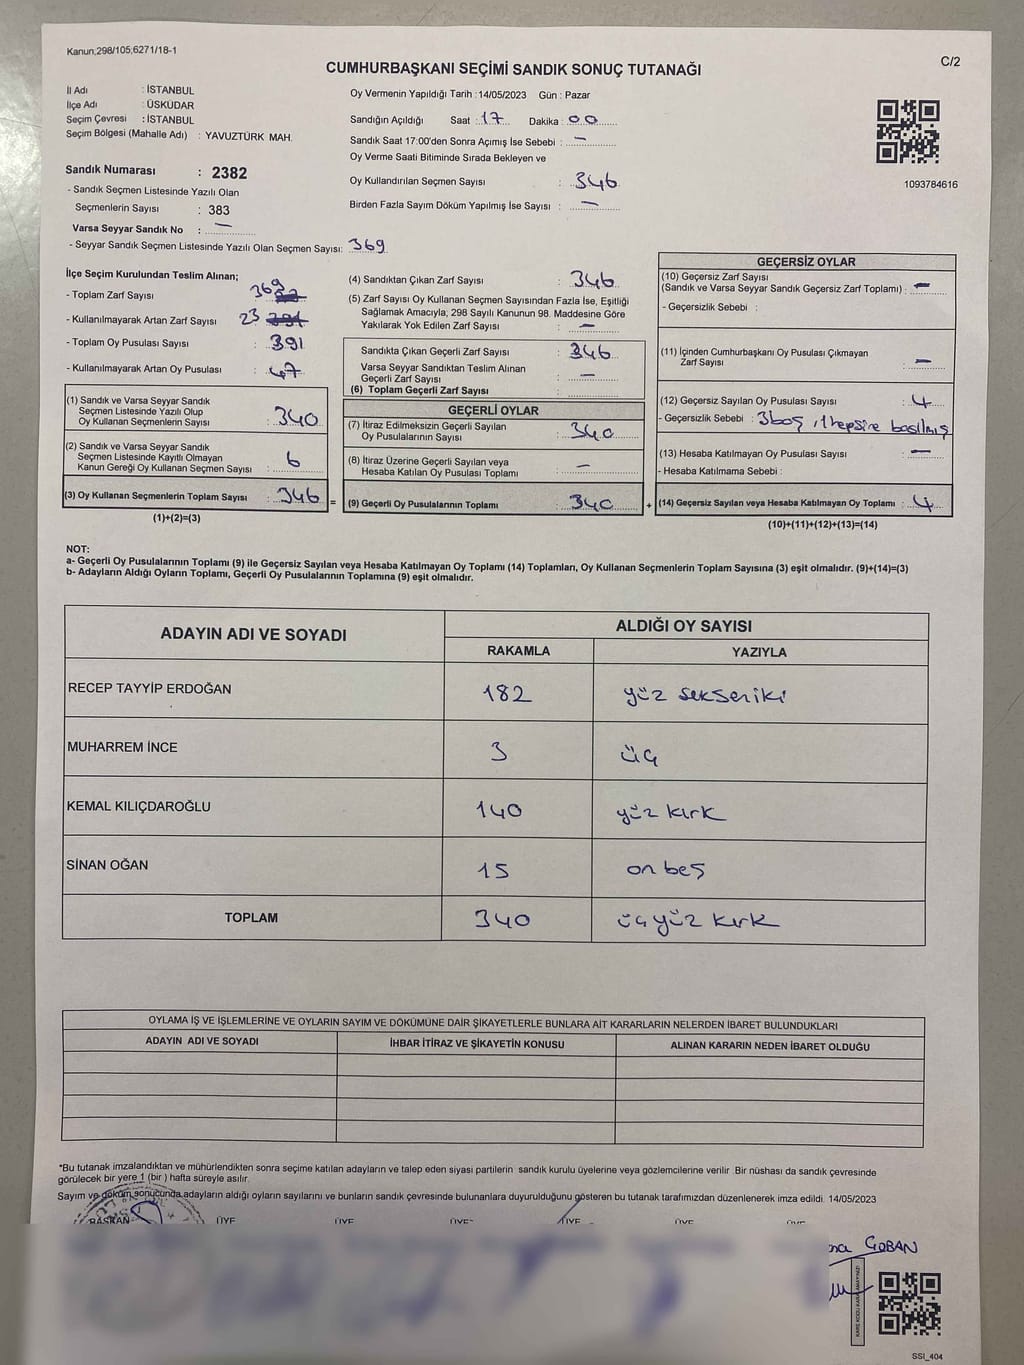 Kanun;298/105;6271/18-1
C/2
CUMHURBAŞKANI SEÇİMİ SANDIK SONUÇ TUTANAĞI
İl Adı : İSTANBUL
İlçe Adı : ÜSKÜDAR
Seçim Çevresi : İSTANBUL
Seçim Bölgesi (Mahalle Adı) : YAVUZTÜRK MAH.
Oy Vermenin Yapıldığı Tarih :14/05/2023 Gün : Pazar
Sandığın Açıldığı Saat : 17 Dakika : 00
Sandık Saat 17:00'den Sonra Açımış İse Sebebi : —
Oy Verme Saati Bitiminde Sırada Bekleyen ve
Oy Kullandırılan Seçmen Sayısı : 346
Birden Fazla Sayım Döküm Yapılmış İse Sayısı : —
1093784616
Sandık Numarası : 2382
- Sandık Seçmen Listesinde Yazılı Olan
Seçmenlerin Sayısı : 383
Varsa Seyyar Sandık No : —
- Seyyar Sandık Seçmen Listesinde Yazılı Olan Seçmen Sayısı: 369
İlçe Seçim Kurulundan Teslim Alınan;
- Toplam Zarf Sayısı 369
- Kullanılmayarak Artan Zarf Sayısı 23
- Toplam Oy Pusulası Sayısı : 391
- Kullanılmayarak Artan Oy Pusulası : 47
(1) Sandık ve Varsa Seyyar Sandık
Seçmen Listesinde Yazılı Olup
Oy Kullanan Seçmenlerin Sayısı : 340
(2) Sandık ve Varsa Seyyar Sandık
Seçmen Listesinde Kayıtlı Olmayan
Kanun Gereği Oy Kullanan Seçmen Sayısı : 6
(3) Oy Kullanan Seçmenlerin Toplam Sayısı : 346 =
(1)+(2)=(3)
(4) Sandıktan Çıkan Zarf Sayısı : 346
(5) Zarf Sayısı Oy Kullanan Seçmen Sayısından Fazla İse, Eşitliği
Sağlamak Amacıyla, 298 Sayılı Kanunun 98. Maddesine Göre
Yakılarak Yok Edilen Zarf Sayısı : —
Sandıkta Çıkan Geçerli Zarf Sayısı : 346
Varsa Seyyar Sandıktan Teslim Alınan
Geçerli Zarf Sayısı : —
(6) Toplam Geçerli Zarf Sayısı :
GEÇERLİ OYLAR
(7) İtiraz Edilmeksizin Geçerli Sayılan
Oy Pusulalarının Sayısı : 340
(8) İtiraz Üzerine Geçerli Sayılan veya
Hesaba Katılan Oy Pusulası Toplamı : —
(9) Geçerli Oy Pusulalarının Toplamı : 340 +
GEÇERSİZ OYLAR
(10) Geçersiz Zarf Sayısı
(Sandık ve Varsa Seyyar Sandık Geçersiz Zarf Toplamı) : —
- Geçersizlik Sebebi :
(11) İçinden Cumhurbaşkanı Oy Pusulası Çıkmayan
Zarf Sayısı : —
(12) Geçersiz Sayılan Oy Pusulası Sayısı : 4
- Geçersizlik Sebebi : 3 boş, 1 hepsine basılmış
(13) Hesaba Katılmayan Oy Pusulası Sayısı : —
- Hesaba Katılmama Sebebi :
(14) Geçersiz Sayılan veya Hesaba Katılmayan Oy Toplamı : 4
(10)+(11)+(12)+(13)=(14)
NOT:
a- Geçerli Oy Pusulalarının Toplamı (9) ile Geçersiz Sayılan veya Hesaba Katılmayan Oy Toplamı (14) Toplamları, Oy Kullanan Seçmenlerin Toplam Sayısına (3) eşit olmalıdır. (9)+(14)=(3)
b- Adayların Aldığı Oyların Toplamı, Geçerli Oy Pusulalarının Toplamına (9) eşit olmalıdır.
ADAYIN ADI VE SOYADI
ALDIĞI OY SAYISI
RAKAMLA YAZIYLA
RECEP TAYYİP ERDOĞAN 182 yüz sekseniki
MUHARREM İNCE 3 üç
KEMAL KILIÇDAROĞLU 140 yüz kırk
SİNAN OĞAN 15 on beş
TOPLAM 340 üçyüz kırk
OYLAMA İŞ VE İŞLEMLERİNE VE OYLARIN SAYIM VE DÖKÜMÜNE DAİR ŞİKAYETLERLE BUNLARA AİT KARARLARIN NELERDEN İBARET BULUNDUKLARI
ADAYIN ADI VE SOYADI İHBAR İTİRAZ VE ŞİKAYETİN KONUSU ALINAN KARARIN NEDEN İBARET OLDUĞU
*Bu tutanak imzalandıktan ve mühürlendikten sonra seçime katılan adayların ve talep eden siyasi partilerin sandık kurulu üyelerine veya gözlemcilerine verilir. Bir nüshası da sandık çevresinde
görülecek bir yere 1 (bir) hafta süreyle asılır.
Sayım ve döküm sonucunda adayların aldığı oyların sayılarını ve bunların sandık çevresinde bulunanlara duyurulduğunu gösteren bu tutanak tarafımızdan düzenlenerek imza edildi. 14/05/2023
BAŞKAN ÜYE ÜYE ÜYE ÜYE ÜYE ÜYE
ÇOBAN
SSI_404